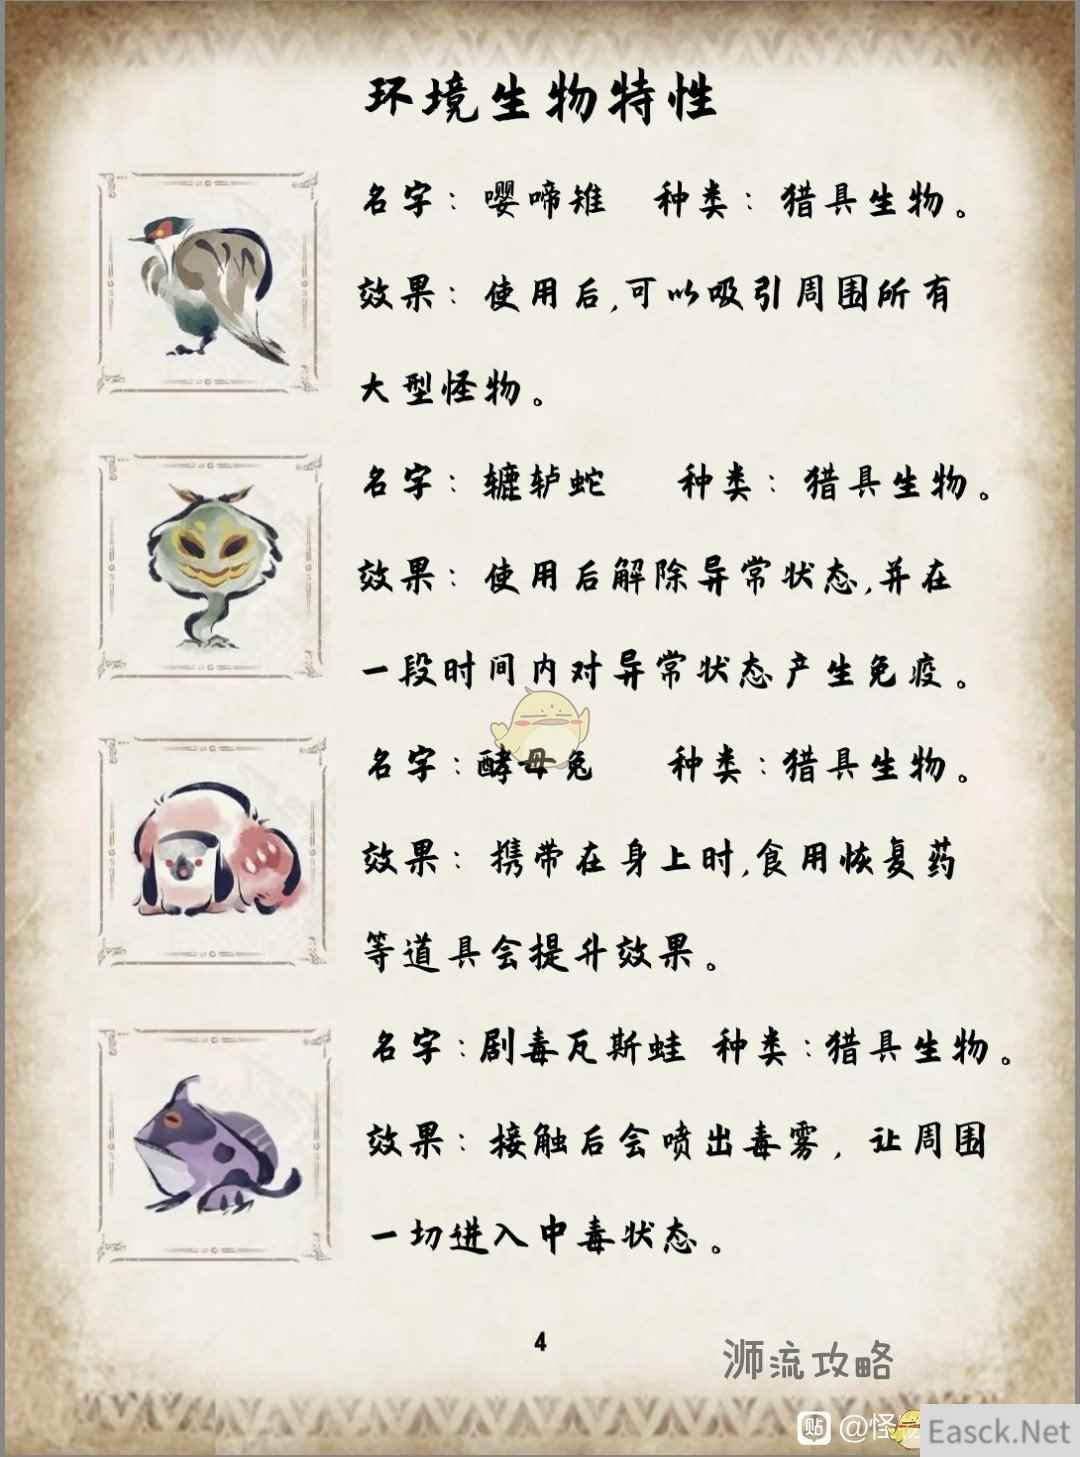 环境生物特性
名字：嘤啼雉 种类：猎具生物。
效果：使用后,可以吸引周围所有
大型怪物。
名字：辘轳蛇 种类：猎具生物。
效果：使用后解除异常状态,并在
一段时间内对异常状态产生免疫。
名字：酵母兔 种类：猎具生物。
效果：携带在身上时,食用恢复药
等道具会提升效果。
名字：剧毒瓦斯蛙 种类：猎具生物。
效果：接触后会喷出毒雾，让周围
一切进入中毒状态。
4
浉流攻略
贴 @怪
Easck.Net